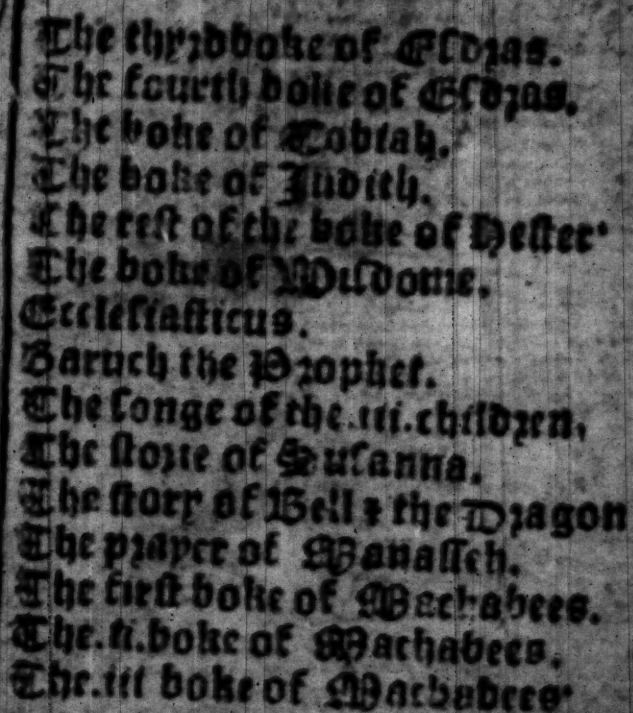 The thyrd boke of Eſdꝛas.
The fourth boke of Eſdꝛas.
The boke of Tobiah.
The boke of Judith.
The reſt of the boke of Heſter
The boke of Wiſdome.
Eccleſiaſticus.
Baruch the Pꝛophet.
The ſonge of the .iii. childꝛen.
The ſtoꝛie of Suſanna.
The ſtory of Bell ⁊ the Dꝛagon
The pꝛayer of Manaſſeh.
The firſt boke of Machabees.
The .ii. boke of Machabees.
The .iii boke of Machabees